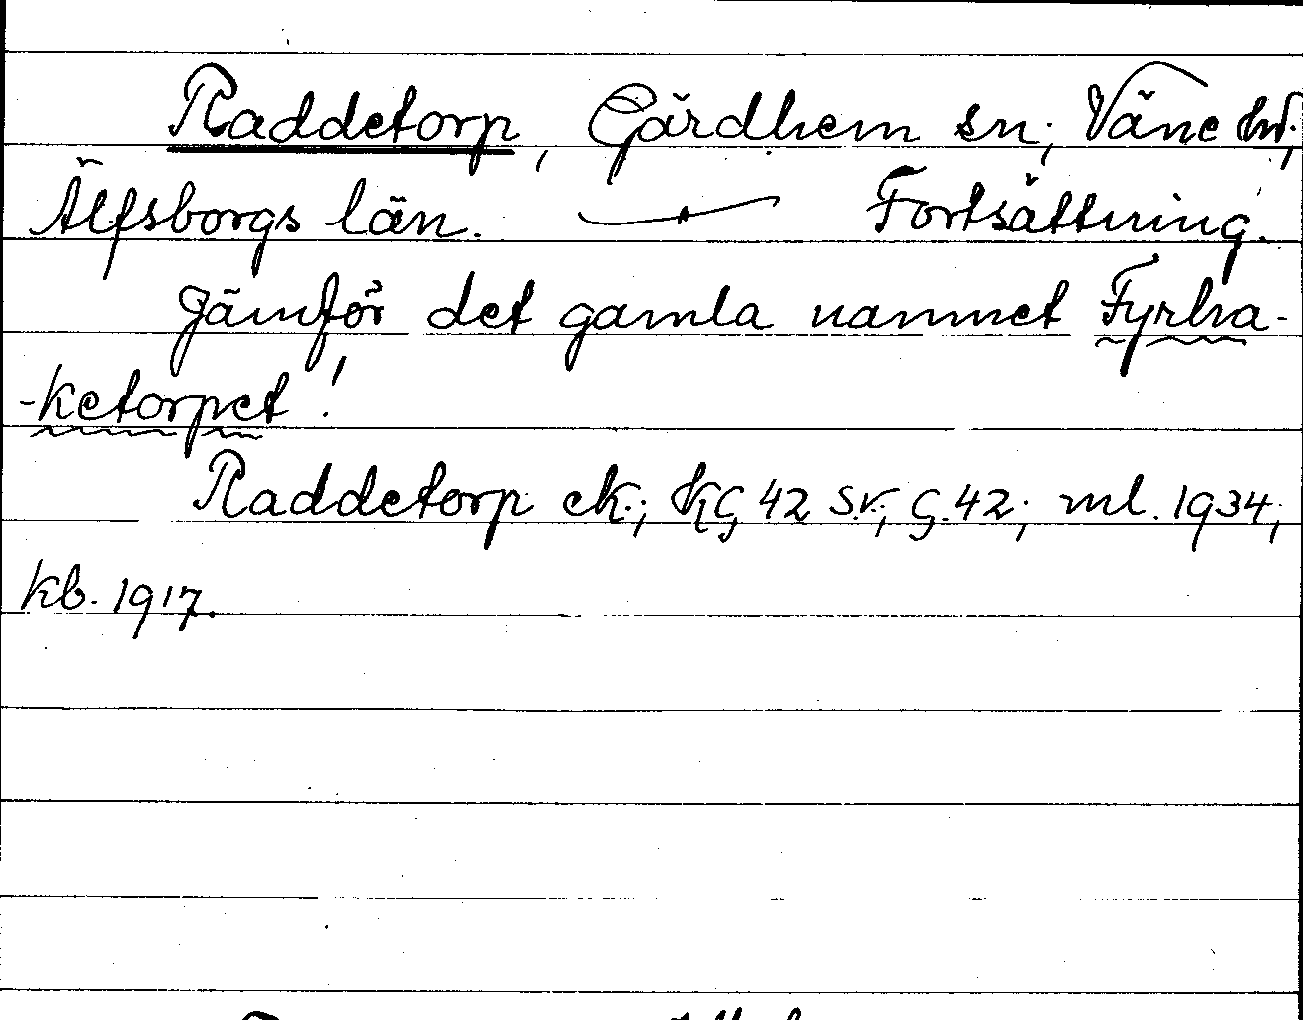 Raddetorp, Gärdhem sn; Väne hd;
Älfsborgs län. Fortsättning.
Jämför det gamla namnet Fyrha-
-ketorpet!
Raddetorp ek; KG 42 SV; G.42; ml. 1934;
kb. 1917.